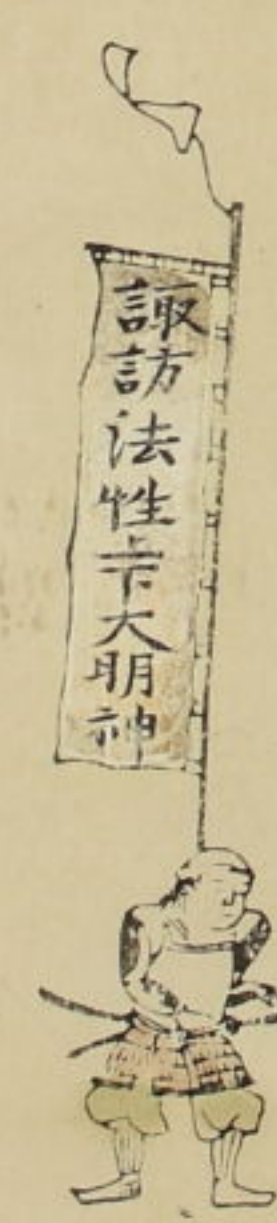 諏訪法性上下大明神